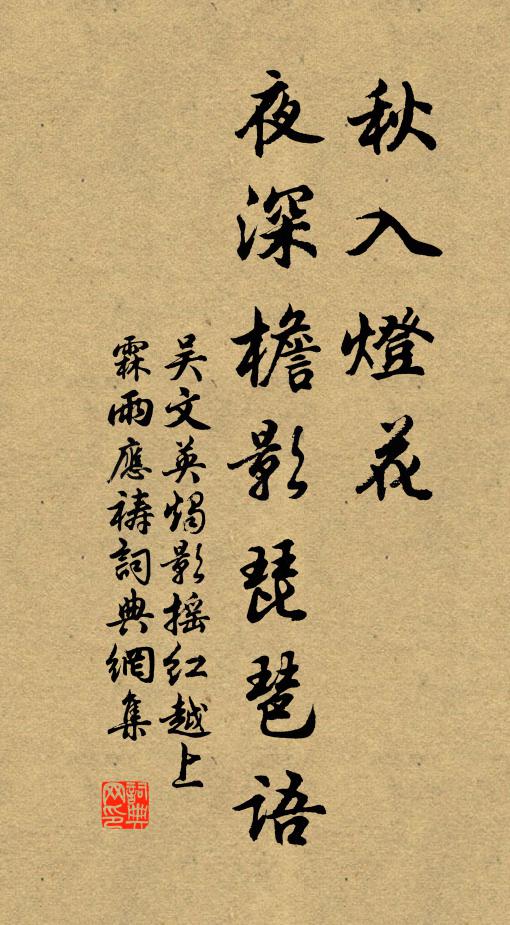 秋入燈花
夜深檐影琵琶語
吴文英燭影摇紅越上
霖雨應禱詞典網集
詞典
网印